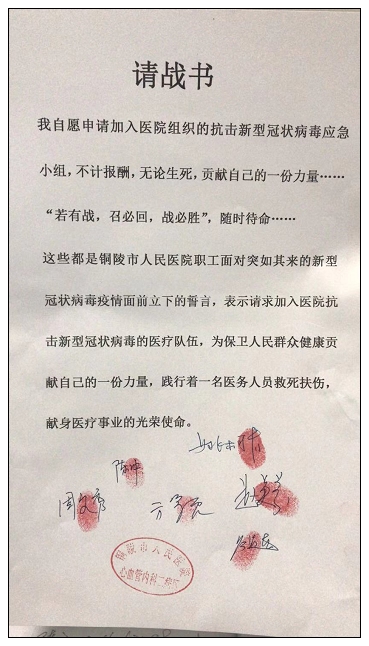 请战书
我自愿申请加入医院组织的抗击新型冠状病毒应急
小组，不计报酬，无论生死，贡献自己的一份力量……
“若有战，召必回，战必胜”，随时待命……
这些都是铜陵市人民医院职工面对突如其来的新型
冠状病毒疫情面前立下的誓言，表示请求加入医院抗
击新型冠状病毒的医疗队伍，为保卫人民群众健康贡
献自己的一份力量，践行着一名医务人员救死扶伤，
献身医疗事业的光荣使命。
铜陵市人民医院
心血管内科二病区